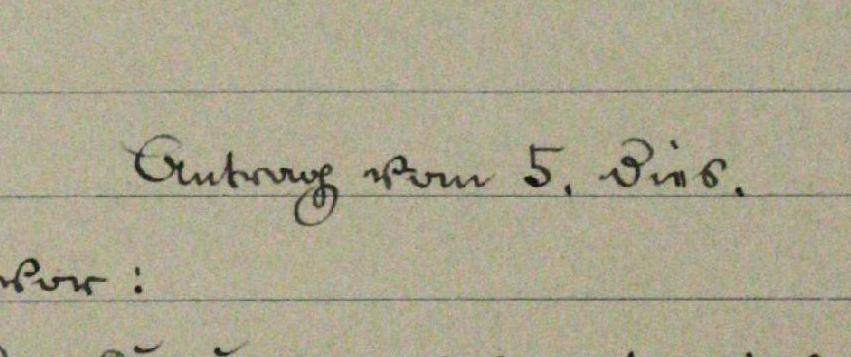 Antrag vom 5. dies.
vor: